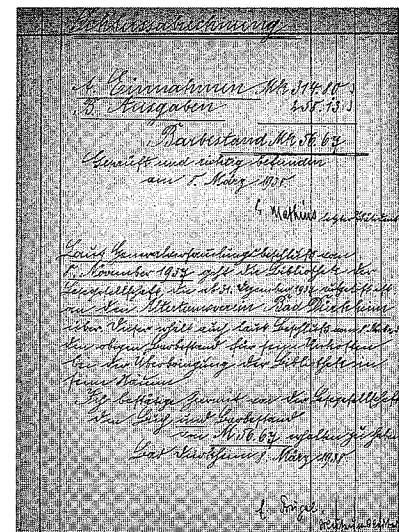 Schlussabrechnung
A. Einnahmen Mk 314.80
B. Ausgaben 258.13
Barbestand Mk 56.67
Geprüft und richtig befunden
am 5. März 1935
Mathius
Laut Generalversammlungsbeschluß vom
November 1934 geht die Bibliothek der
Lesegesellschaft, die ab 31. Dezember 1934 aufgelöst
an den Altertumsverein Bad Dürkheim
über. Dieser erhält auch laut Beschluß vom
den obigen Barbestand für seine Unkosten
bei der Überbringung der Bibliothek in
seine Räume
Ich bestätige hiermit von der Lesegesellschaft
den und Barbestand
von M 56.67 erhalten zu haben
Bad Dürkheim März 1935